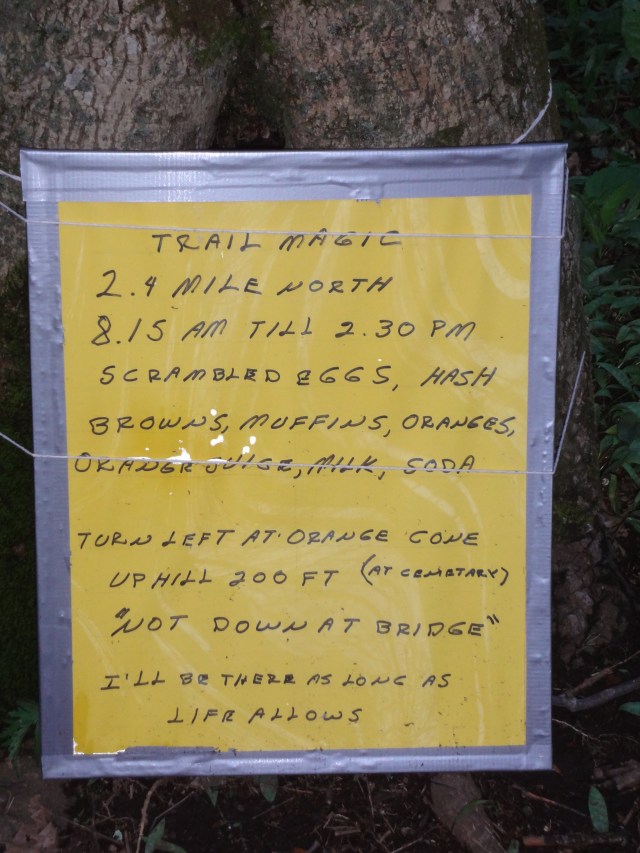 TRAIL MAGIC
2.4 MILE NORTH
8.15 AM TILL 2.30 PM
SCRAMBLED EGGS, HASH
BROWNS, MUFFINS, ORANGES,
ORANGE JUICE, MILK, SODA
TURN LEFT AT ORANGE CONE
UPHILL 200 FT (AT CEMETARY)
"NOT DOWN AT BRIDGE"
I'LL BE THERE AS LONG AS
LIFE ALLOWS